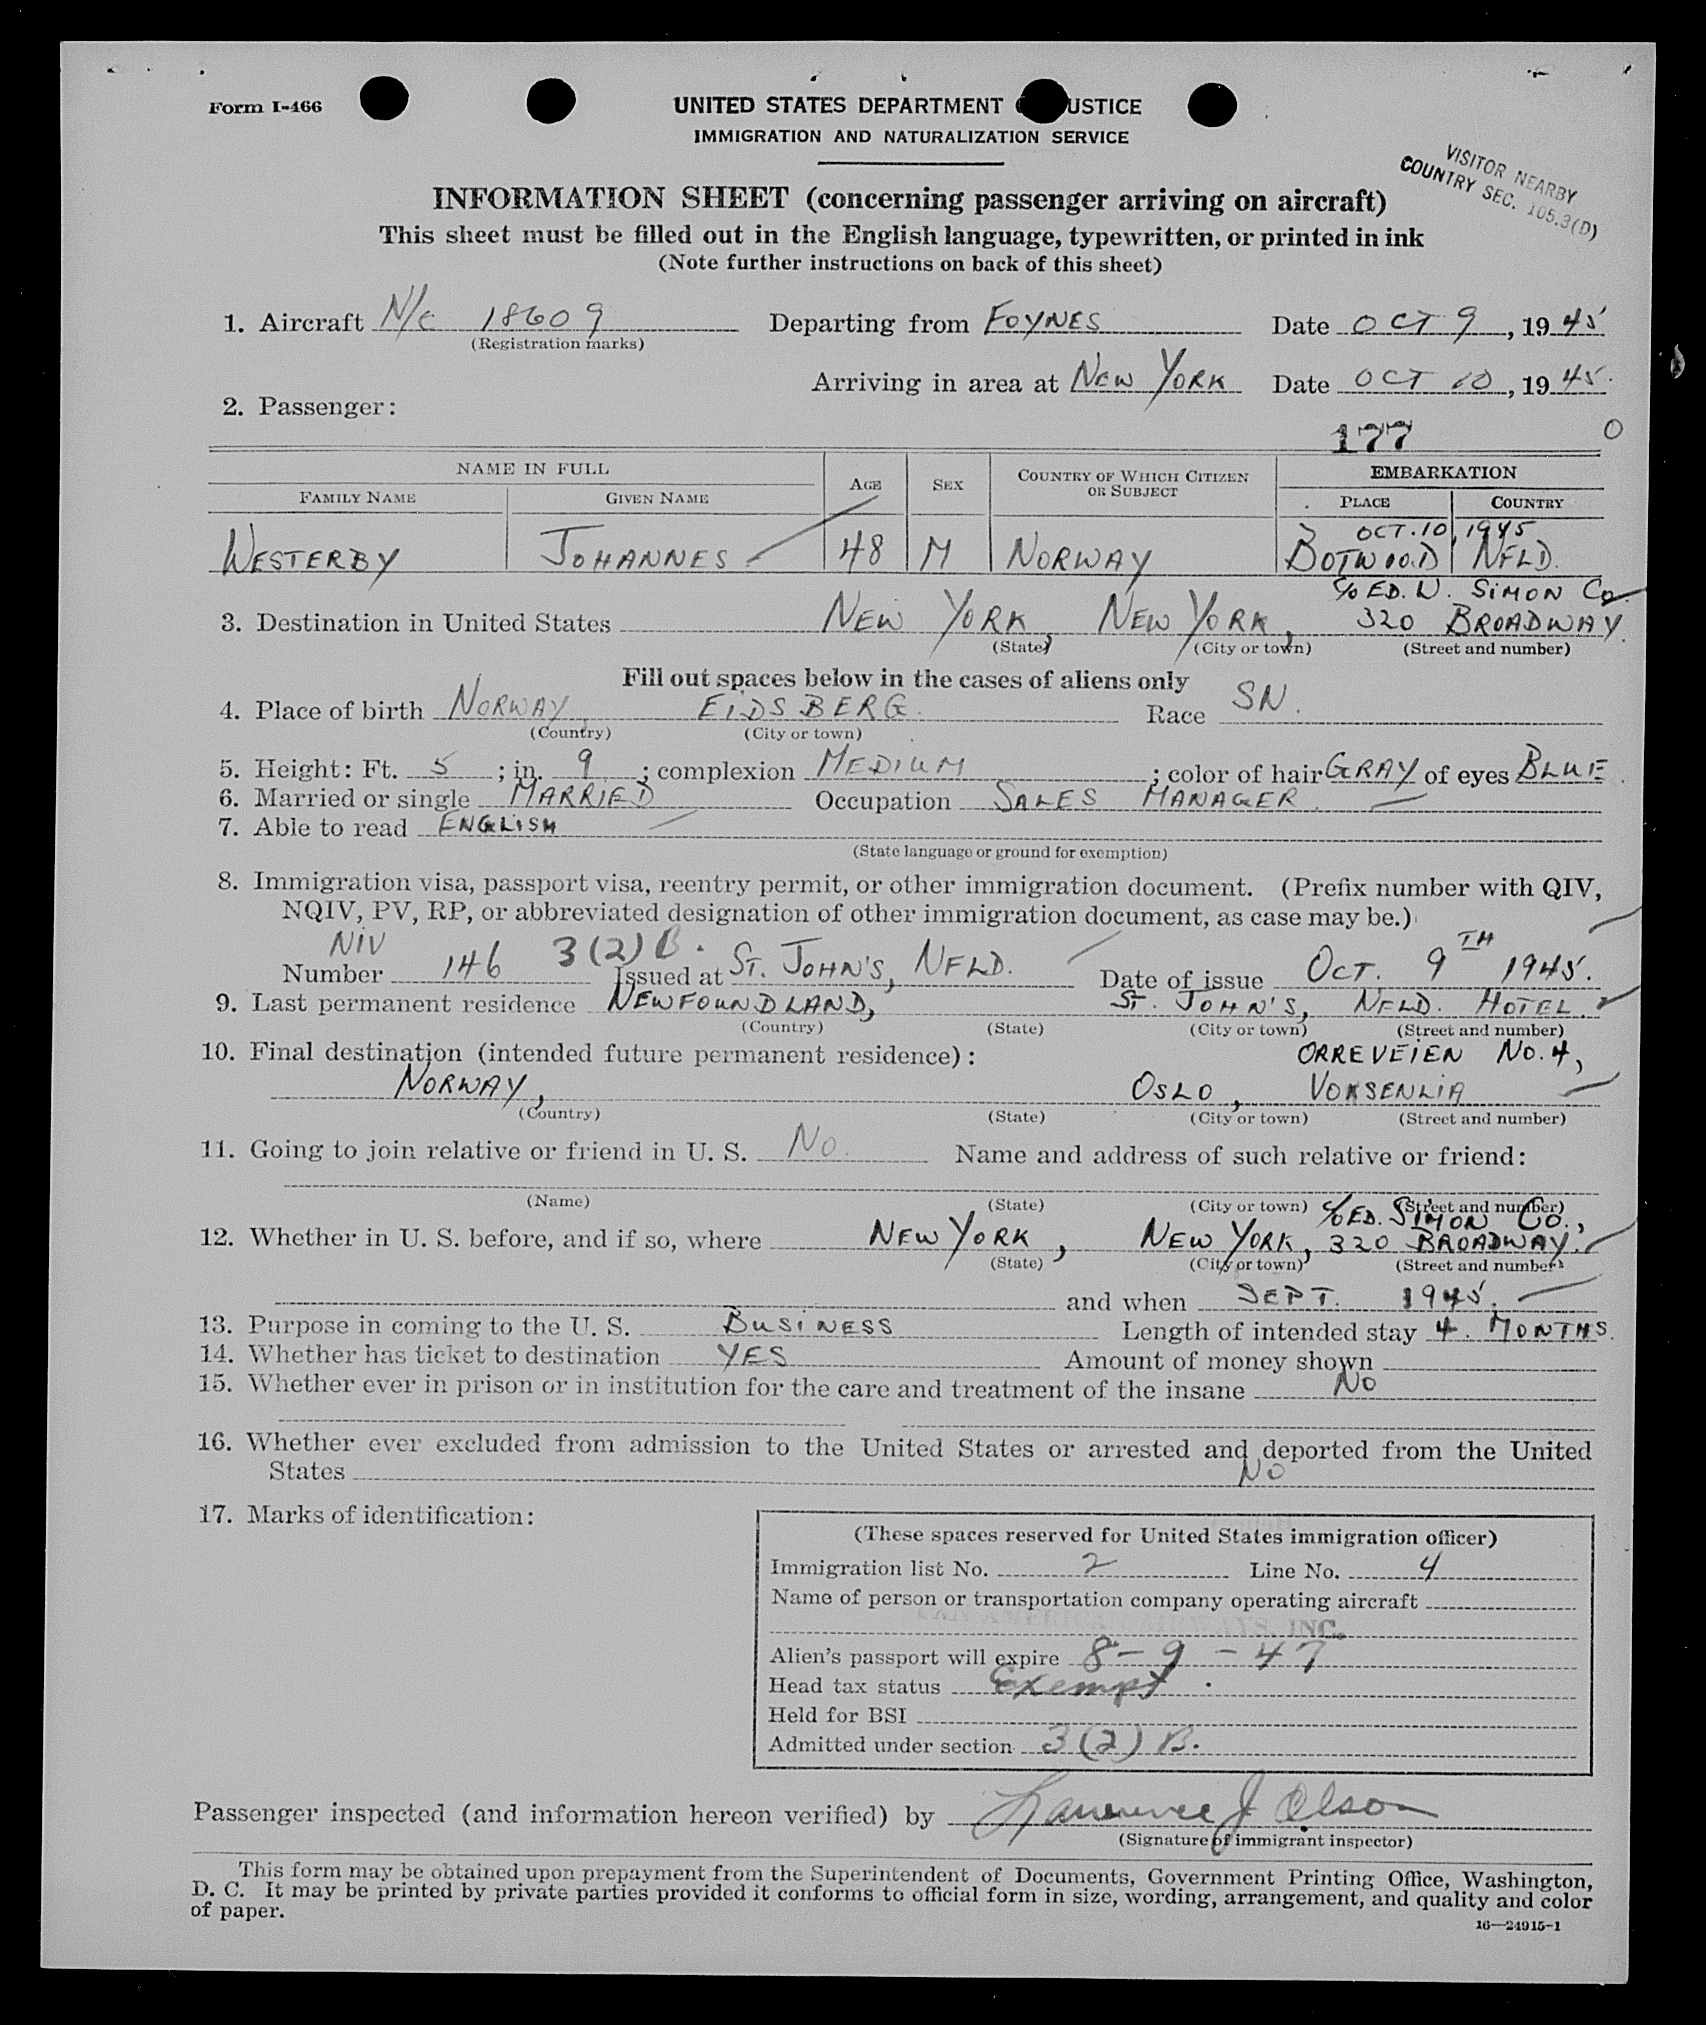 Form I-466
UNITED STATES DEPARTMENT USTICE
IMMIGRATION AND NATURALIZATION SERVICE
VISITOR NEARBY
COUNTRY SEC. 105.3(D)
INFORMATION SHEET (concerning passenger arriving on aircraft)
This sheet must be filled out in the English language, typewritten, or printed in ink
(Note further instructions on back of this sheet)
1. Aircraft N/C 18609 Departing from FOYNES Date OCT 9, 1945
(Registration marks)
Arriving in area at NEW YORK Date OCT 10, 1945.
2. Passenger:
177 0
NAME IN FULL AGE SEX COUNTRY OF WHICH CITIZEN OR SUBJECT EMBARKATION
FAMILY NAME GIVEN NAME PLACE COUNTRY
OCT. 10, 1945
WESTERBY JOHANNES 48 M NORWAY BOTWOOD NFLD.
C/O ED. W. SIMON CO.
3. Destination in United States NEW YORK, NEW YORK, 320 BROADWAY.
(State) (City or town) (Street and number)
Fill out spaces below in the cases of aliens only
4. Place of birth NORWAY, EIDSBERG. Race SN.
(Country) (City or town)
5. Height: Ft. 5; in. 9; complexion MEDIUM; color of hair GRAY of eyes BLUE.
6. Married or single MARRIED Occupation SALES MANAGER.
7. Able to read ENGLISH
(State language or ground for exemption)
8. Immigration visa, passport visa, reentry permit, or other immigration document. (Prefix number with QIV,
NQIV, PV, RP, or abbreviated designation of other immigration document, as case may be.)
NIV
Number 146 3(2)B. Issued at ST. JOHN'S, NFLD. Date of issue OCT. 9TH 1945.
9. Last permanent residence NEWFOUNDLAND, ST. JOHN'S, NFLD. HOTEL.
(Country) (State) (City or town) (Street and number)
10. Final destination (intended future permanent residence): ORREVEIEN NO. 4,
NORWAY, OSLO, VOKSENLIA
(Country) (State) (City or town) (Street and number)
11. Going to join relative or friend in U. S. NO. Name and address of such relative or friend:
(Name) (State) (City or town) (Street and number)
C/O ED. SIMON CO.,
12. Whether in U. S. before, and if so, where NEW YORK, NEW YORK, 320 BROADWAY.
(State) (City or town) (Street and number)
and when SEPT. 1945.
13. Purpose in coming to the U. S. BUSINESS Length of intended stay 4. MONTHS.
14. Whether has ticket to destination YES Amount of money shown
15. Whether ever in prison or in institution for the care and treatment of the insane NO
16. Whether ever excluded from admission to the United States or arrested and deported from the United
States NO
17. Marks of identification:
(These spaces reserved for United States immigration officer)
Immigration list No. 2 Line No. 4
Name of person or transportation company operating aircraft
INC.
Alien's passport will expire 8-9-47
Head tax status Exempt.
Held for BSI
Admitted under section 3(2)B.
Passenger inspected (and information hereon verified) by Lawrence J Olson
(Signature of immigrant inspector)
This form may be obtained upon prepayment from the Superintendent of Documents, Government Printing Office, Washington,
D. C. It may be printed by private parties provided it conforms to official form in size, wording, arrangement, and quality and color
of paper.
16—24915-1